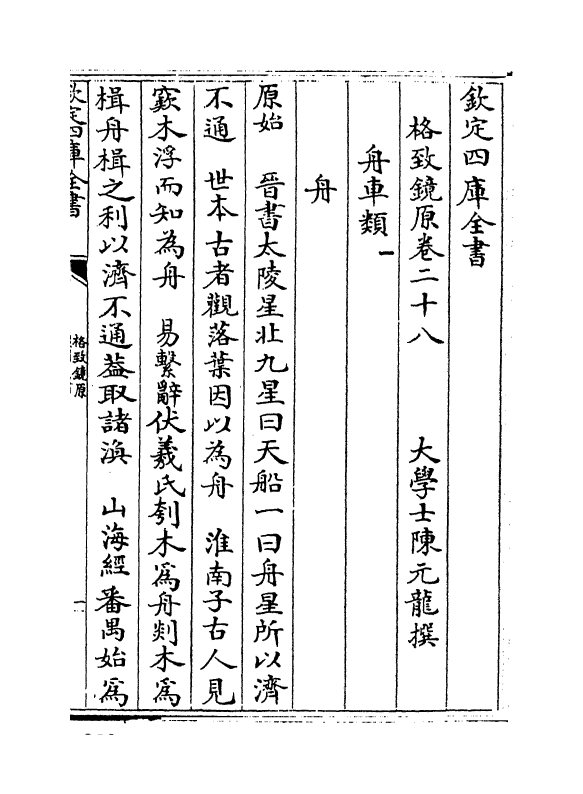 欽定四庫全書
格致鏡原卷二十八　大學士陳元龍撰
舟車類一
舟
原始　晉書太陵星北九星曰天船一曰舟星所以濟
不通　世本古者觀落葉因以為舟　淮南子古人見
窾木浮而知為舟　易繫辭伏羲氏刳木爲舟剡木爲
楫舟楫之利以濟不通葢取諸渙　山海經番禺始爲
欽定四庫全書
格致鏡原